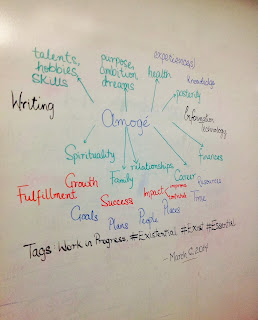 talents,
hobbies,
skills
purpose,
ambition
dreams
experience(s)
health
knowledge
posterity
Writing
amogé
Information
technology
Spirituality
Family
relationships
Career
Finances
Growth
Fulfillment
Success
Impact
Resources
Time
Goals
Plans
People
Places
Tags: Work in Progress, #Existential #Exist #Essential
- March ©, 2014